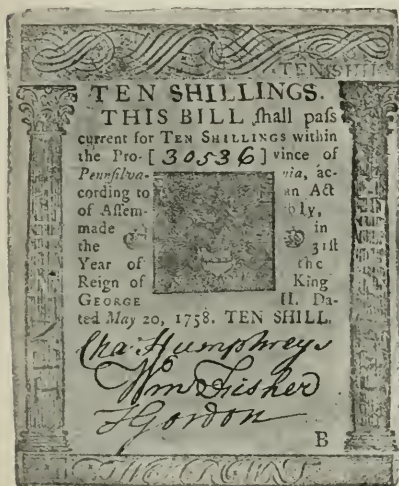 TEN SHILL
TEN SHILLINGS.
THIS BILL ſhall paſs
current for TEN SHILLINGS within
the Pro- [ 30536 ] vince of
Pennſilva- nia, ac-
cording to an Act
of Aſſem- bly,
made in
the 31ſt
Year of the
Reign of King
GEORGE II. Da-
ted May 20, 1758. TEN SHILL.
Cha: Humphreys
Wm Fisher
T Gordon
B